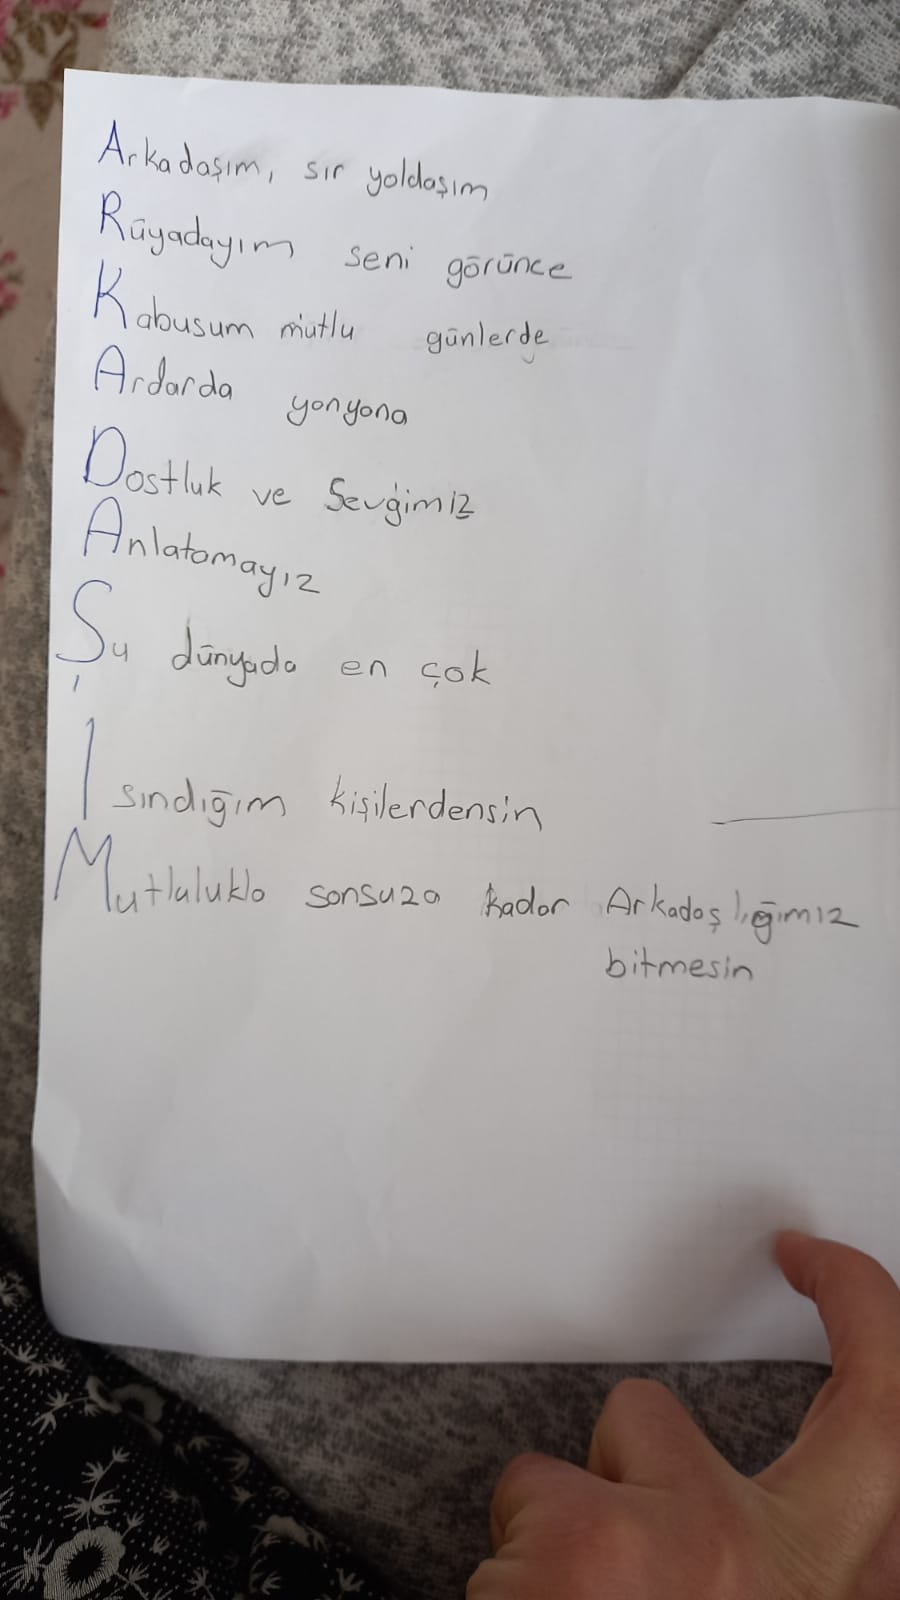 Arkadaşım, sır yoldaşım
Rüyadayım seni görünce
Kabusum mutlu günlerde
Ardarda yanyana
Dostluk ve Sevğimiz
Anlatamayız
Şu dünyada en çok
Isındığım kişilerdensin
Mutlulukla sonsuza kadar Arkadaşlığımız
bitmesin